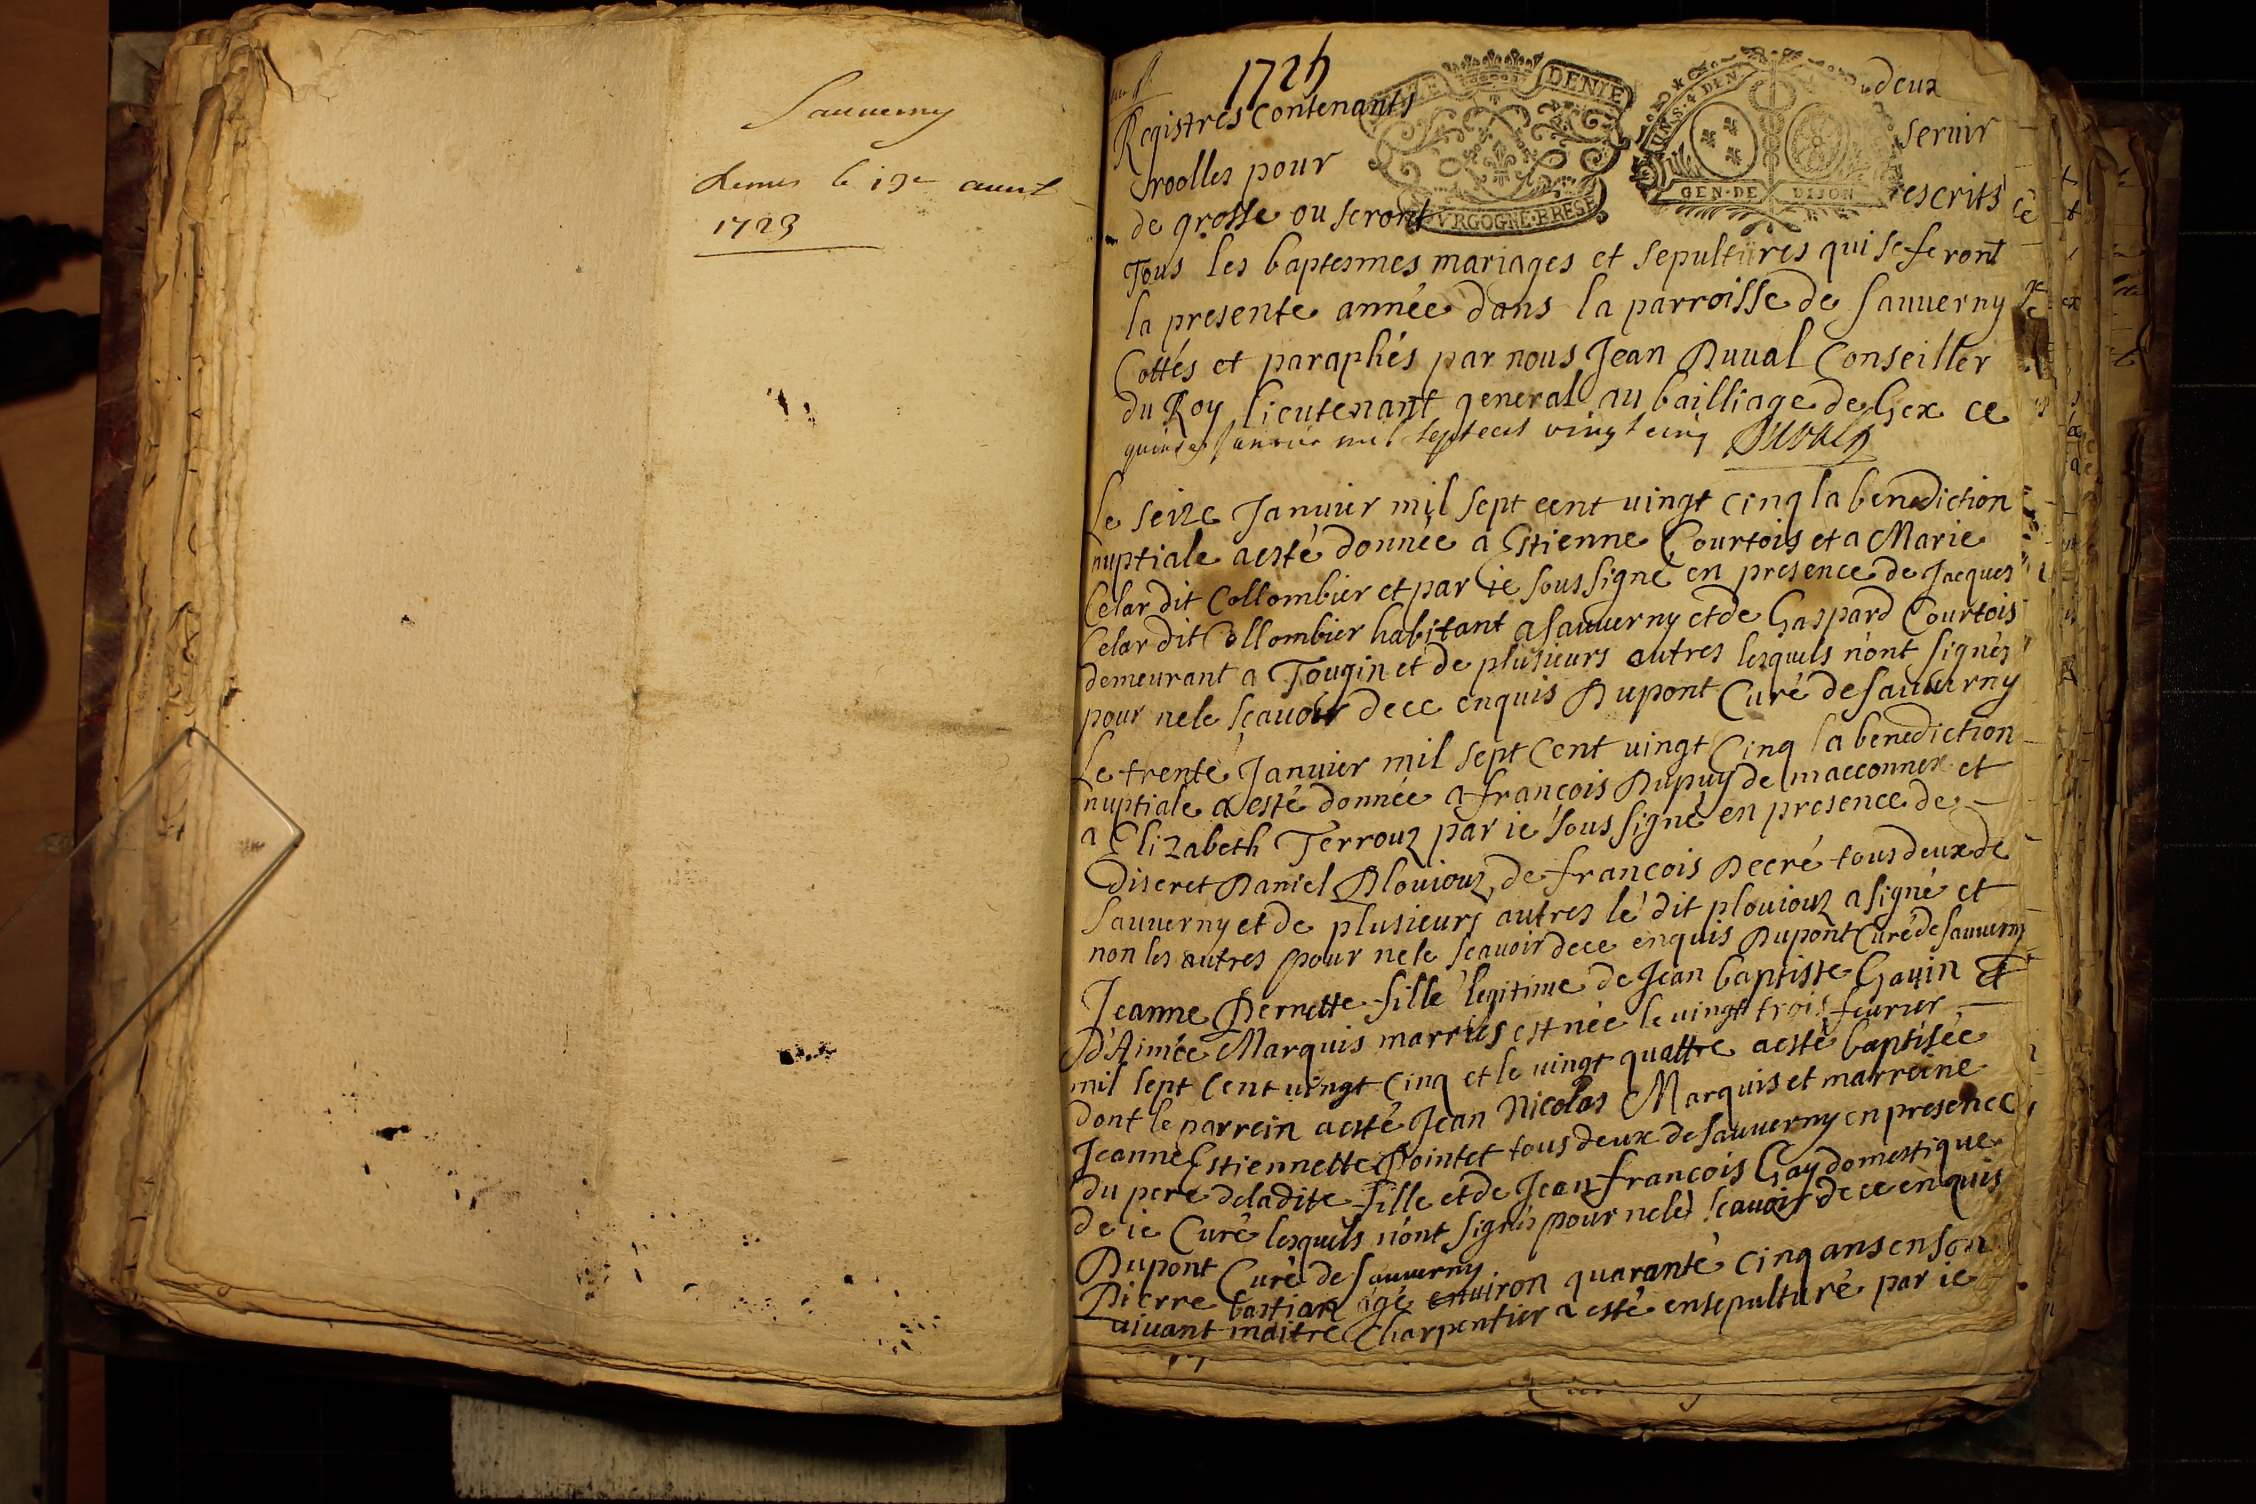 Sauverny
Remis le 19e avril
1723
1725
Registres contenants deux
roolles pour servir
de grosse ou seront escrits
DENIE
BOVRGOGNE·BRESE
UN·S·4·DEN
GEN·DE DIJON
Tous les baptesmes mariages et sepultures qui se feront
la presente année dans la parroisse de sauverny
Cottés et paraphés par nous Jean Duval Conseiller
du Roy lieutenant general au bailliage de Gex ce
quinze Janvier mil sept cens vingt cinq Duval
Le seize Janvier mil sept cent vingt cinq la benediction
nuptiale a esté donnée a Estienne Courtois et a Marie
Celar dit Collombier et par ie sous signé en presence de Jacques
Celar dit Collombier habitant a sauverny et de Gaspard Courtois
demeurant a Tougin et de plusieurs autres lesquels n'ont signés
pour ne le sçavoir de ce enquis Dupont Curé de sauverny
Le trente Janvier mil sept Cent vingt Cinq la benediction
nuptiale a esté donnée a françois Dupuy de maconnex et
a Elizabeth Terrouz par ie sous signé en presence de
discret Daniel Plouiouz de françois Decré tous deux de
Sauverny et de plusieurs autres le dit plouiouz a signé et
non les autres pour ne le sçavoir de ce enquis Dupont Curé de sauverny
Jeanne Pernette fille legitime de Jean baptiste Gavin et
D'Aimée Marquis marriés est née le vingt trois fevrier
mil sept Cent vingt Cinq et le vingt quattre a esté baptisée
dont le parrein a esté Jean Nicolas Marquis et marreine
Jeanne Estiennette Pointet tous deux de sauverny en presence
du pere de ladite fille et de Jean françois Gay domestique
de ie Curé lesquels n'ont signés pour ne le sçavoir de ce enquis
Dupont Curé de sauverny
Pierre bastian agé environ quarante cinq ans en son
vivant maitre Charpentier a esté ensepulturé par ie